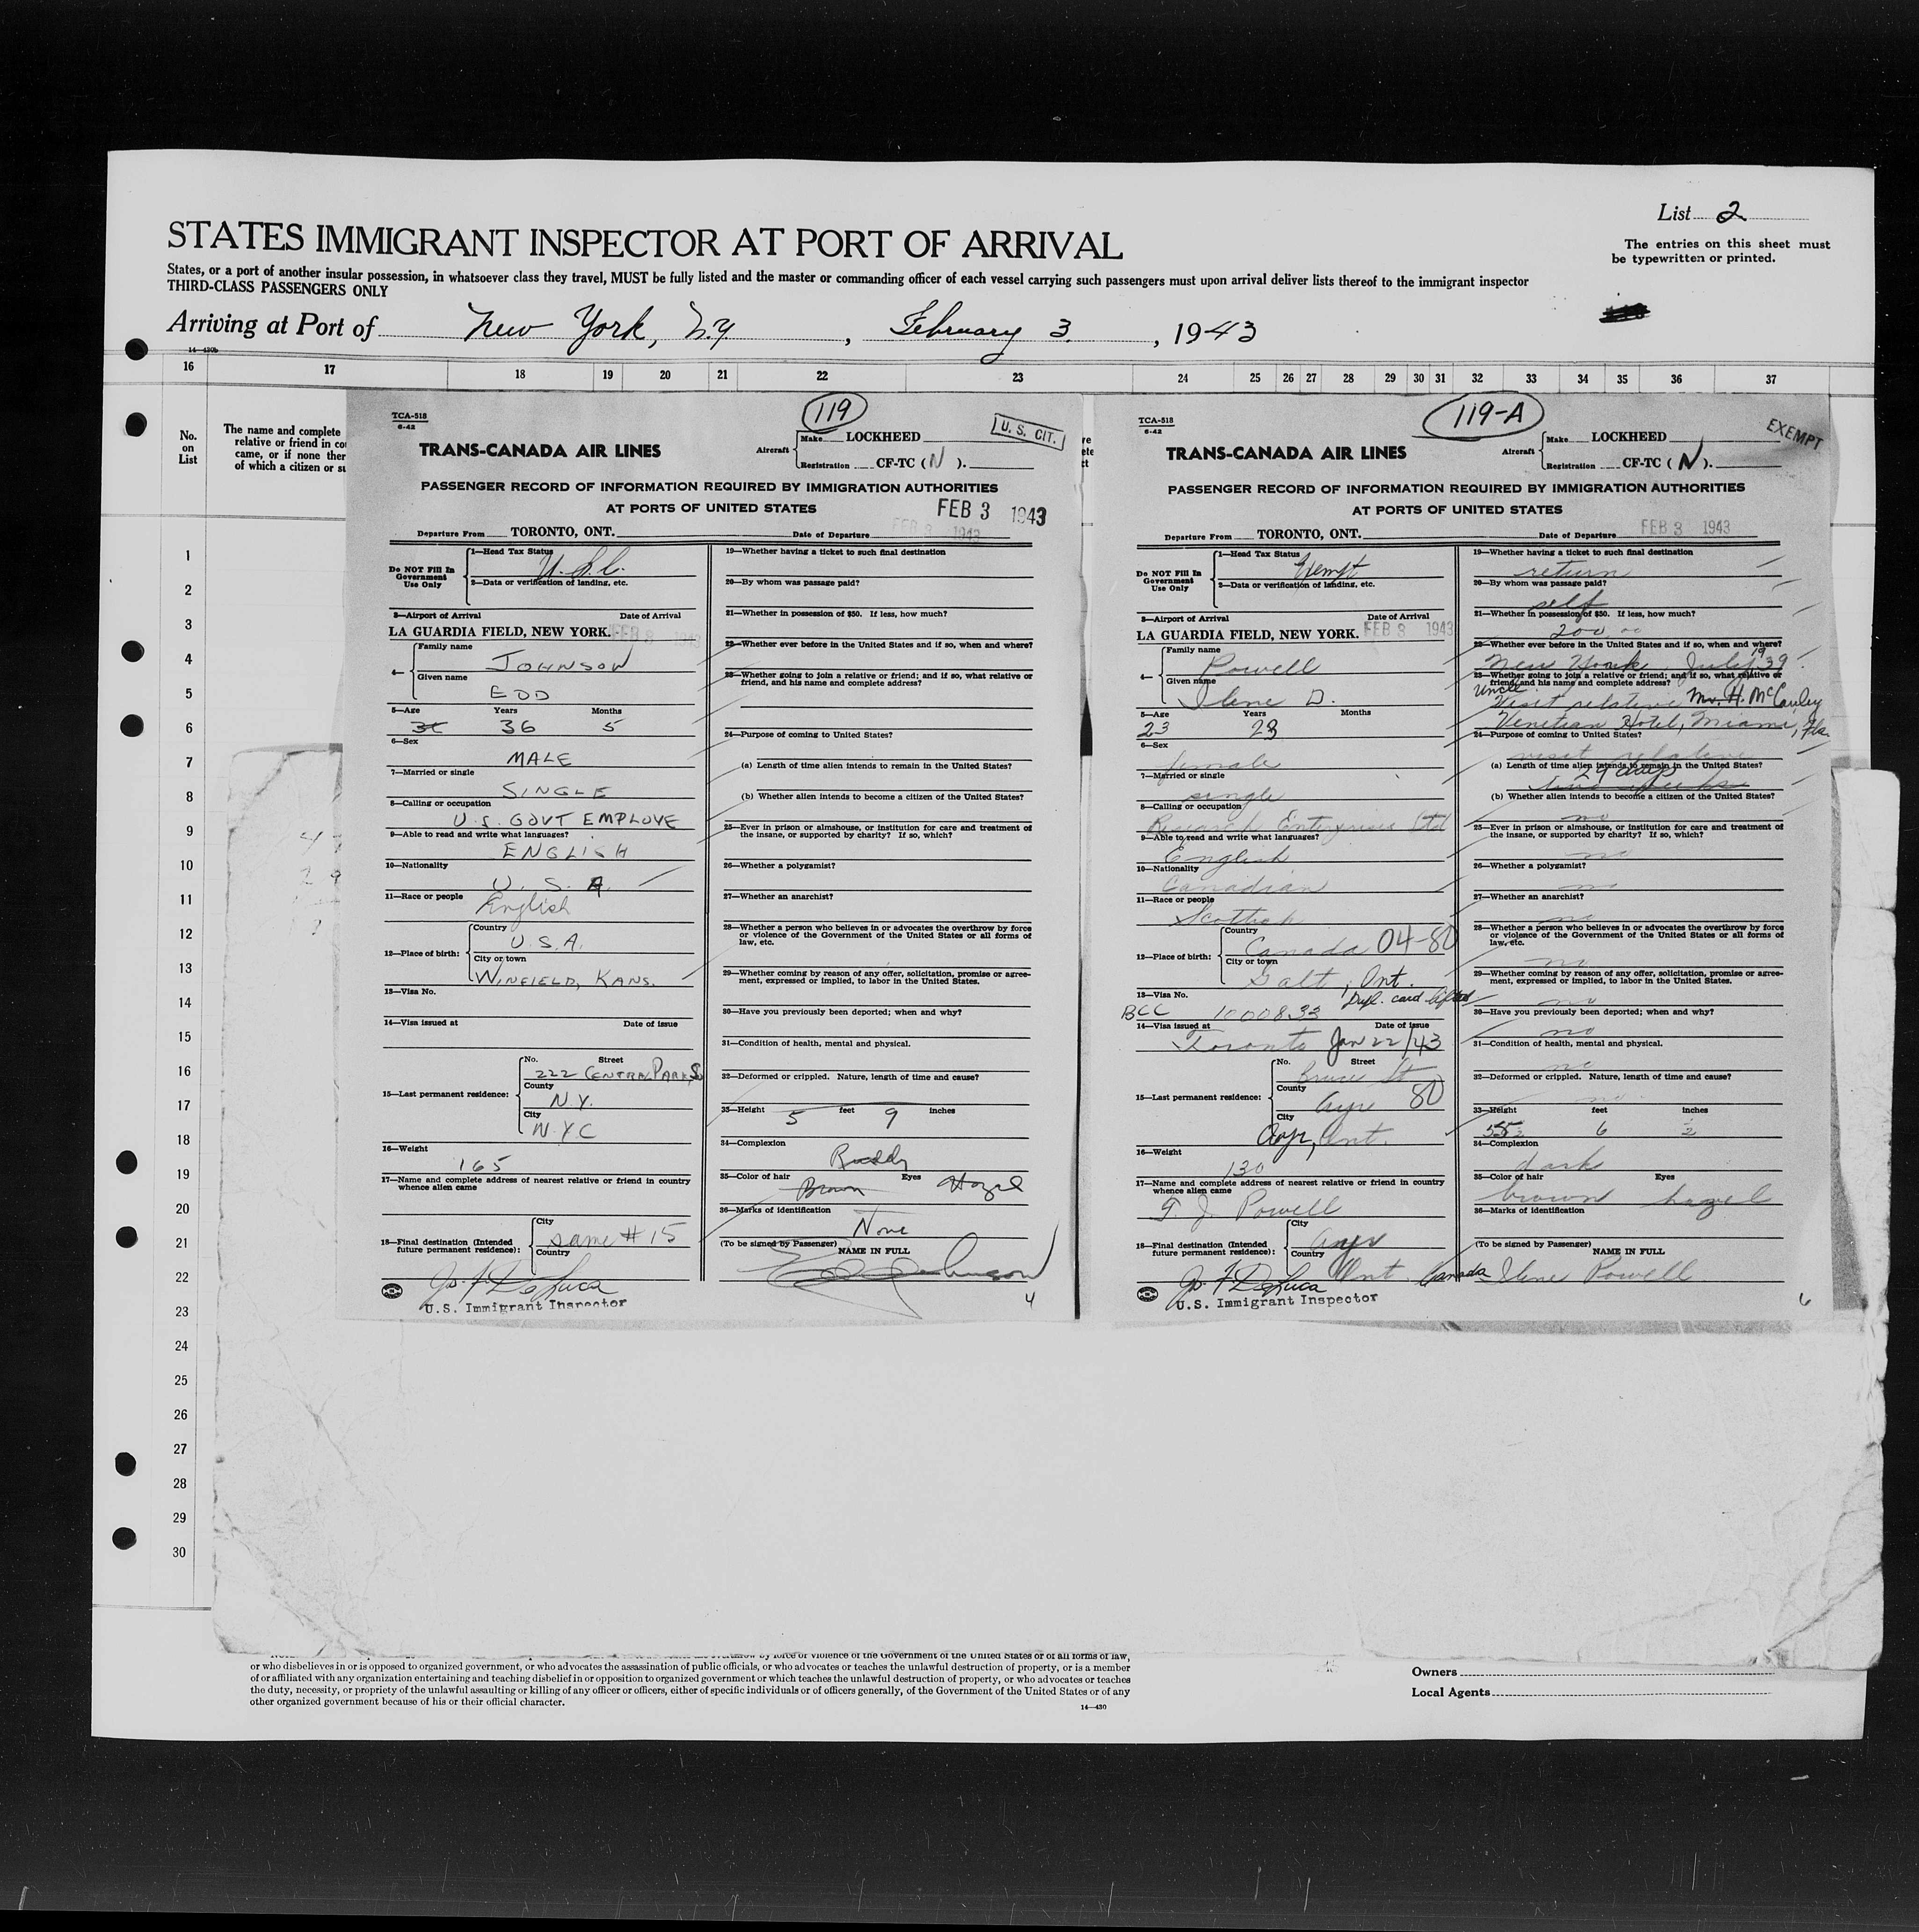 List 2
STATES IMMIGRANT INSPECTOR AT PORT OF ARRIVAL
The entries on this sheet must
be typewritten or printed.
States, or a port of another insular possession, in whatsoever class they travel, MUST be fully listed and the master or commanding officer of each vessel carrying such passengers must upon arrival deliver lists thereof to the immigrant inspector
THIRD-CLASS PASSENGERS ONLY
Arriving at Port of New York, N.Y. , February 3 , 1943
16 17 18 19 20 21 22 23 24 25 26 27 28 29 30 31 32 33 34 35 36 37
No.
on
List
The name and complete
relative or friend in
came, or if none
of which a citizen or
1
2
3
4
5
6
7
8
9
10
11
12
13
14
15
16
17
18
19
20
21
22
23
24
25
26
27
28
29
30
TCA-518
6-42
119
U. S. CIT.
TRANS-CANADA AIR LINES
Aircraft
Make LOCKHEED
Registration CF-TC ( N ).
PASSENGER RECORD OF INFORMATION REQUIRED BY IMMIGRATION AUTHORITIES
AT PORTS OF UNITED STATES
FEB 3 1943
Departure From TORONTO, ONT. Date of Departure FEB 3 1943
Do NOT Fill In
Government
Use Only
1—Head Tax Status
U.S.C.
2—Data or verification of landing, etc.
3—Airport of Arrival Date of Arrival
LA GUARDIA FIELD, NEW YORK. FEB 3 1943
4—
Family name
JOHNSON
Given name
EDD
5—Age Years Months
36 5
6—Sex
MALE
7—Married or single
SINGLE
8—Calling or occupation
U.S. GOVT EMPLOYE
9—Able to read and write what languages?
ENGLISH
10—Nationality
U. S. A.
11—Race or people
English
12—Place of birth:
Country
U.S.A.
City or town
WINFIELD, KANS.
13—Visa No.
14—Visa issued at Date of issue
15—Last permanent residence:
No. Street
222 CENTRAL PARK S
County
N.Y.
City
N.Y.C
16—Weight
165
17—Name and complete address of nearest relative or friend in country
whence alien came
18—Final destination (Intended
future permanent residence):
City
same # 15
Country
Jos. F. DeLuca
U.S. Immigrant Inspector
19—Whether having a ticket to such final destination
20—By whom was passage paid?
21—Whether in possession of $50. If less, how much?
22—Whether ever before in the United States and if so, when and where?
23—Whether going to join a relative or friend; and if so, what relative or
friend, and his name and complete address?
24—Purpose of coming to United States?
(a) Length of time alien intends to remain in the United States?
(b) Whether alien intends to become a citizen of the United States?
25—Ever in prison or almshouse, or institution for care and treatment of
the insane, or supported by charity? If so, which?
26—Whether a polygamist?
27—Whether an anarchist?
28—Whether a person who believes in or advocates the overthrow by force
or violence of the Government of the United States or all forms of
law, etc.
29—Whether coming by reason of any offer, solicitation, promise or agree-
ment, expressed or implied, to labor in the United States.
30—Have you previously been deported; when and why?
31—Condition of health, mental and physical.
32—Deformed or crippled. Nature, length of time and cause?
33—Height 5 feet 9 inches
34—Complexion
Ruddy
35—Color of hair Eyes
Brown Hazel
36—Marks of identification
None
(To be signed by Passenger) NAME IN FULL
Edd Johnson
4
TCA-518
6-42
119-A
EXEMPT
TRANS-CANADA AIR LINES
Aircraft
Make LOCKHEED
Registration CF-TC ( N ).
PASSENGER RECORD OF INFORMATION REQUIRED BY IMMIGRATION AUTHORITIES
AT PORTS OF UNITED STATES
Departure From TORONTO, ONT. Date of Departure FEB 3 1943
Do NOT Fill In
Government
Use Only
1—Head Tax Status
Exempt
2—Data or verification of landing, etc.
3—Airport of Arrival Date of Arrival
LA GUARDIA FIELD, NEW YORK. FEB 3 1943
4—
Family name
Powell
Given name
Ilene D.
5—Age Years Months
23 23
6—Sex
female
7—Married or single
single
8—Calling or occupation
Research Enterprises Ltd
9—Able to read and write what languages?
English
10—Nationality
Canadian
11—Race or people
Scottish
12—Place of birth:
Country
Canada 04-80
City or town
Galt, Ont.
13—Visa No. Dupl. card lifted
BCC 1000833
14—Visa issued at Date of issue
Toronto Jan 22/43
15—Last permanent residence:
No. Street
Bruce St
County
Ayr 80
City
Ayr, Ont.
16—Weight
130
17—Name and complete address of nearest relative or friend in country
whence alien came
J. Powell
18—Final destination (Intended
future permanent residence):
City
Ayr
Country
Ont. Canada
Jos. F. DeLuca
U.S. Immigrant Inspector
19—Whether having a ticket to such final destination
return
20—By whom was passage paid?
self
21—Whether in possession of $50. If less, how much?
200.00
22—Whether ever before in the United States and if so, when and where?
New York, July 1939
23—Whether going to join a relative or friend; and if so, what relative or
friend, and his name and complete address?
Uncle
Visit relative Mr. H. McCauley
Venetian Hotel, Miami, Fla.
24—Purpose of coming to United States?
visit relative
(a) Length of time alien intends to remain in the United States?
29 days
two weeks
(b) Whether alien intends to become a citizen of the United States?
no
25—Ever in prison or almshouse, or institution for care and treatment of
the insane, or supported by charity? If so, which?
no
26—Whether a polygamist?
no
27—Whether an anarchist?
no
28—Whether a person who believes in or advocates the overthrow by force
or violence of the Government of the United States or all forms of
law, etc.
no
29—Whether coming by reason of any offer, solicitation, promise or agree-
ment, expressed or implied, to labor in the United States.
no
30—Have you previously been deported; when and why?
no
31—Condition of health, mental and physical.
no
32—Deformed or crippled. Nature, length of time and cause?
no
33—Height feet inches
6 ½
34—Complexion
dark
35—Color of hair Eyes
brown hazel
36—Marks of identification
(To be signed by Passenger) NAME IN FULL
Ilene Powell
6
by force or violence of the Government of the United States or of all forms of law,
or who disbelieves in or is opposed to organized government, or who advocates the assassination of public officials, or who advocates or teaches the unlawful destruction of property, or is a member
of or affiliated with any organization entertaining and teaching disbelief in or opposition to organized government or which teaches the unlawful destruction of property, or who advocates or teaches
the duty, necessity, or propriety of the unlawful assaulting or killing of any officer or officers, either of specific individuals or of officers generally, of the Government of the United States or of any
other organized government because of his or their official character.
14—430
Owners
Local Agents